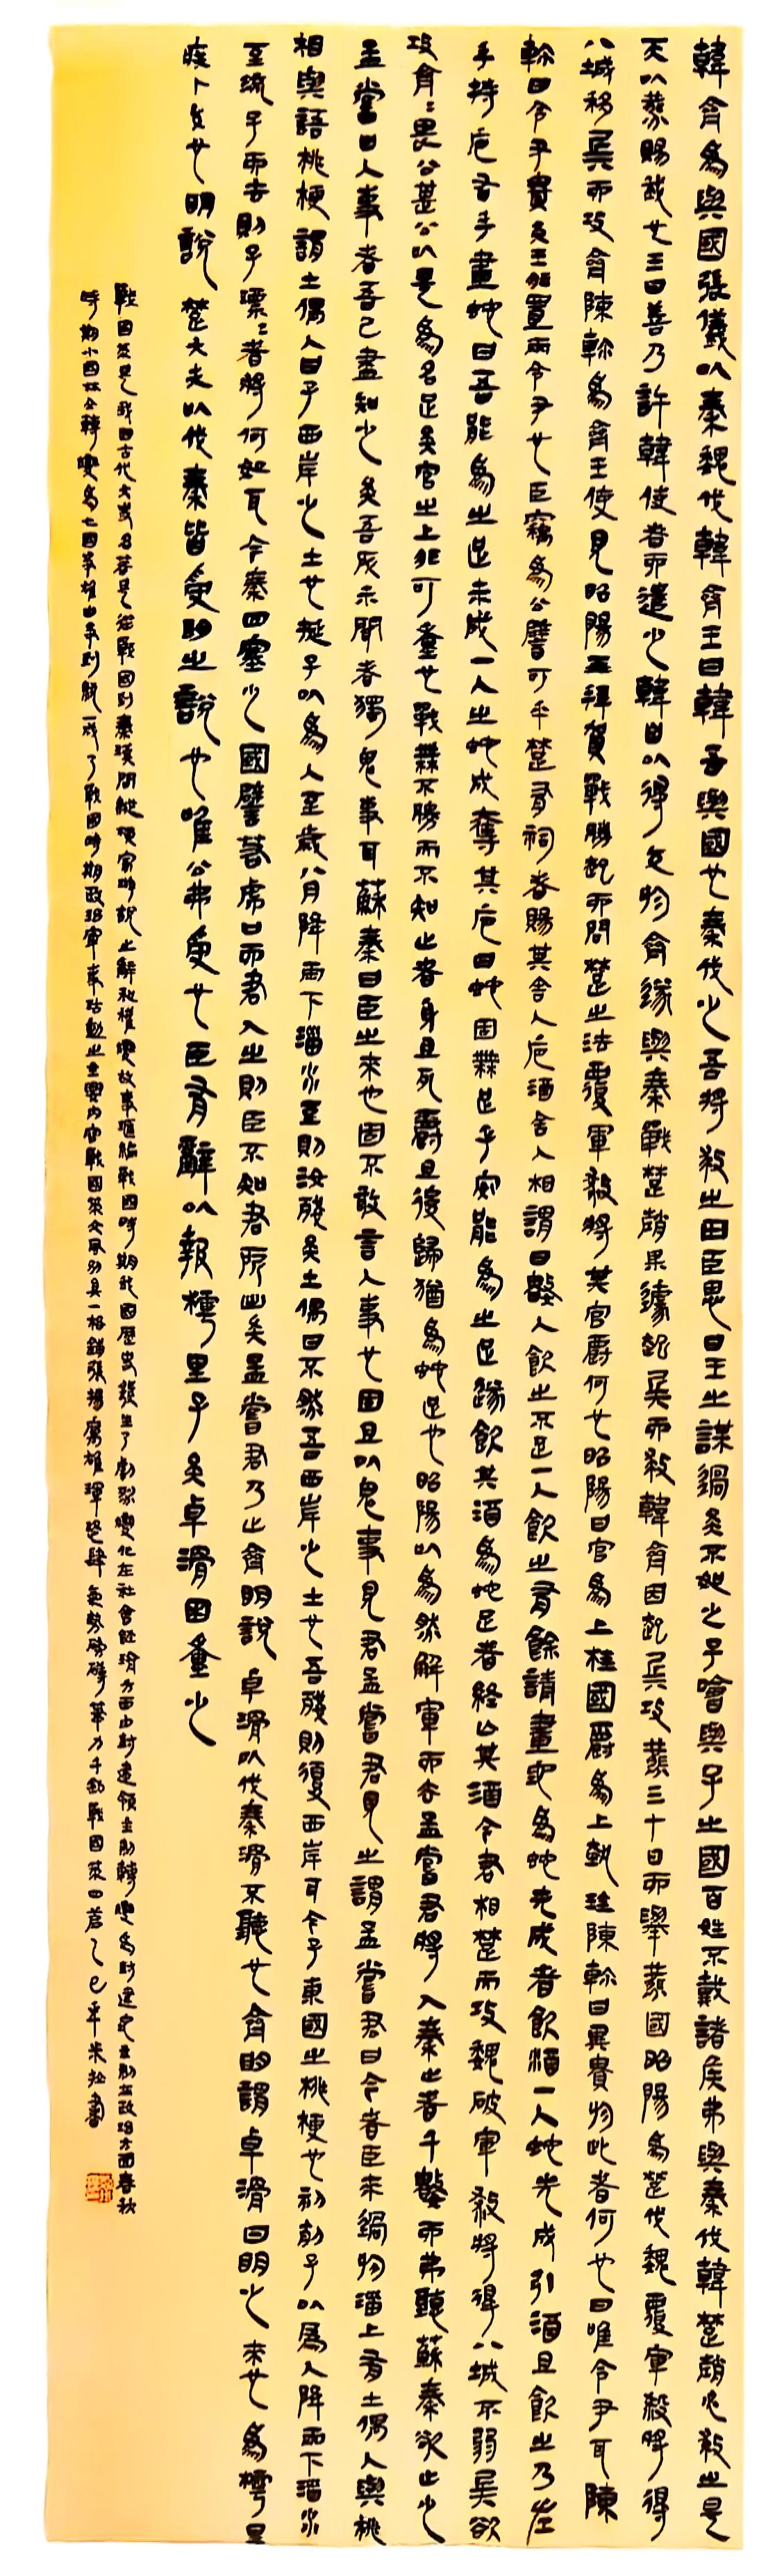 韓齊為與國張儀以秦魏伐韓齊王曰韓吾與國也秦伐之吾將救之田臣思曰王之謀過矣不如之子噲與子之國百姓不戴諸侯弗與秦伐韓楚趙必救之是
天以燕賜我也王曰善乃許韓使者而遣之韓自以得交於齊遂與秦戰楚趙果遽起兵而救韓齊因起兵攻燕三十日而舉燕國昭陽為楚伐魏覆軍殺將得
八城移兵而攻齊陳軫為齊王使見昭陽再拜賀戰勝起而問楚之法覆軍殺將其官爵何也昭陽曰官為上柱國爵為上執珪陳軫曰異貴於此者何也曰唯令尹耳陳
軫曰令尹貴矣王非置兩令尹也臣竊為公譬可乎楚有祠者賜其舍人卮酒舍人相謂曰數人飲之不足一人飲之有餘請畫地為蛇先成者飲酒一人蛇先成引酒且飲之乃左
手持卮右手畫蛇曰吾能為之足未成一人之蛇成奪其卮曰蛇固無足子安能為之足遂飲其酒為蛇足者終亡其酒今君相楚而攻魏破軍殺將得八城不弱兵欲
攻齊齊畏公甚公以是為名足矣官之上非可重也戰無不勝而不知止者身且死爵且後歸猶為蛇足也昭陽以為然解軍而去孟嘗君將入秦止者千數而弗聽蘇秦欲止之
孟嘗曰人事者吾已盡知之矣吾所未聞者獨鬼事耳蘇秦曰臣之來也固不敢言人事也固且以鬼事見君孟嘗君見之謂孟嘗君曰今者臣來過於淄上有土偶人與桃
相與語桃梗謂土偶人曰子西岸之土也挻子以為人至歲八月降雨下淄水至則汝殘矣土偶曰不然吾西岸之土也吾殘則復西岸耳今子東國之桃梗也刻削子以為人降雨下淄水
至流子而去則子漂漂者將何如耳今秦四塞之國譬若虎口而君入之則臣不知君所出矣孟嘗君乃止齊明說卓滑以伐秦滑不聽也齊明謂卓滑曰明之來也為樗里
疾卜交也明說楚大夫以伐秦皆受明之說也唯公弗受也臣有辭以報樗里子矣卓滑因重之
戰國策是我國古代大典名著是從戰國到秦漢間縱橫家游說之辭和權變故事彙編戰國時期我國歷史發生了劇烈變化在社會經濟方面由封建領主制轉變為封建地主制在政治方面春秋
時期小國林立轉變為七國爭雄由爭到統一成了戰國時期政治軍事活動之主要內容戰國策文風別具一格鋪張揚厲雄渾恣肆氣勢磅礴筆力千鈞戰國策四篇乙巳年米松書